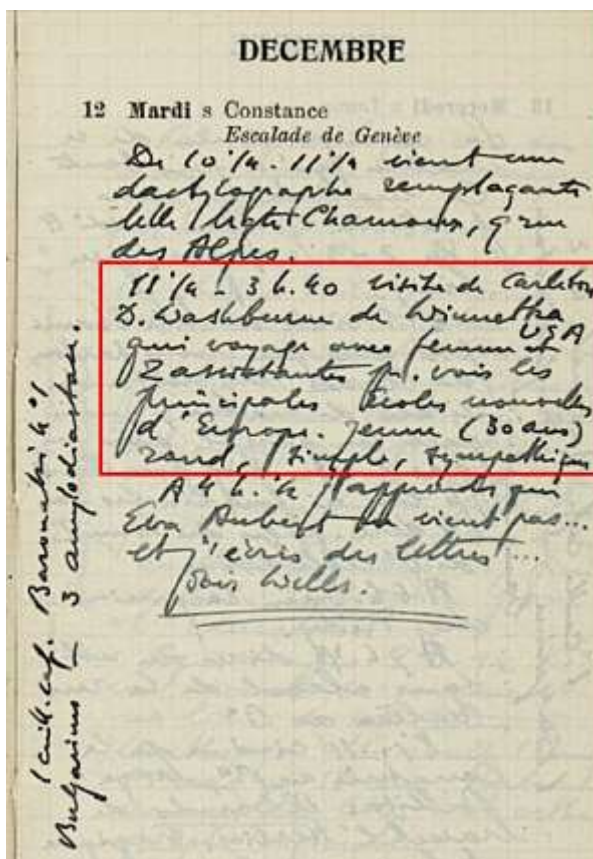 DECEMBRE
12 Mardi s Constance
Escalade de Genève
De 10 1/4 - 11 1/4 vient une
dactylographe remplaçante
Chamonix, 9 rue
des Alpes.
11 1/4 - 3 h. 40 visite de Carleton
D. Washburne de Winnetka
USA
qui voyage avec femme et
2 assistantes pr. voir les
principales écoles nouvelles
d'Europe. jeune (30 ans)
rand, simple, sympathique
A 4 h. 1/4 j'apprends que
Eva Aubert ne vient pas...
et j'écris des lettres...
Wells.
1 cuill. caf.
Bulgarine _ 3 amylodiastase.